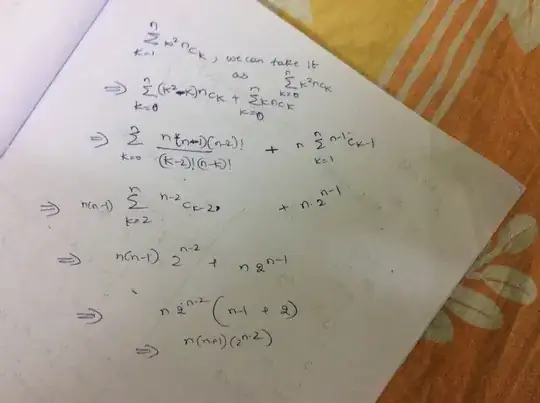 ∑_{k=1}^{n} k² ⁿC_k, we can take it
as ∑_{k=0}^{n} k² ⁿC_k
⇒ ∑_{k=0}^{n} (k²-k) ⁿC_k + ∑_{k=0}^{n} k ⁿC_k
⇒ ∑_{k=0}^{n} n(n-1)(n-2)!/(k-2)!(n-k)! + n ∑_{k=1}^{n} ⁿ⁻¹C_{k-1}
⇒ n(n-1) ∑_{k=2}^{n} ⁿ⁻²C_{k-2} + n·2ⁿ⁻¹
⇒ n(n-1) 2ⁿ⁻² + n 2ⁿ⁻¹
⇒ n 2ⁿ⁻² (n-1 + 2)
⇒ n(n+1)(2ⁿ⁻²)